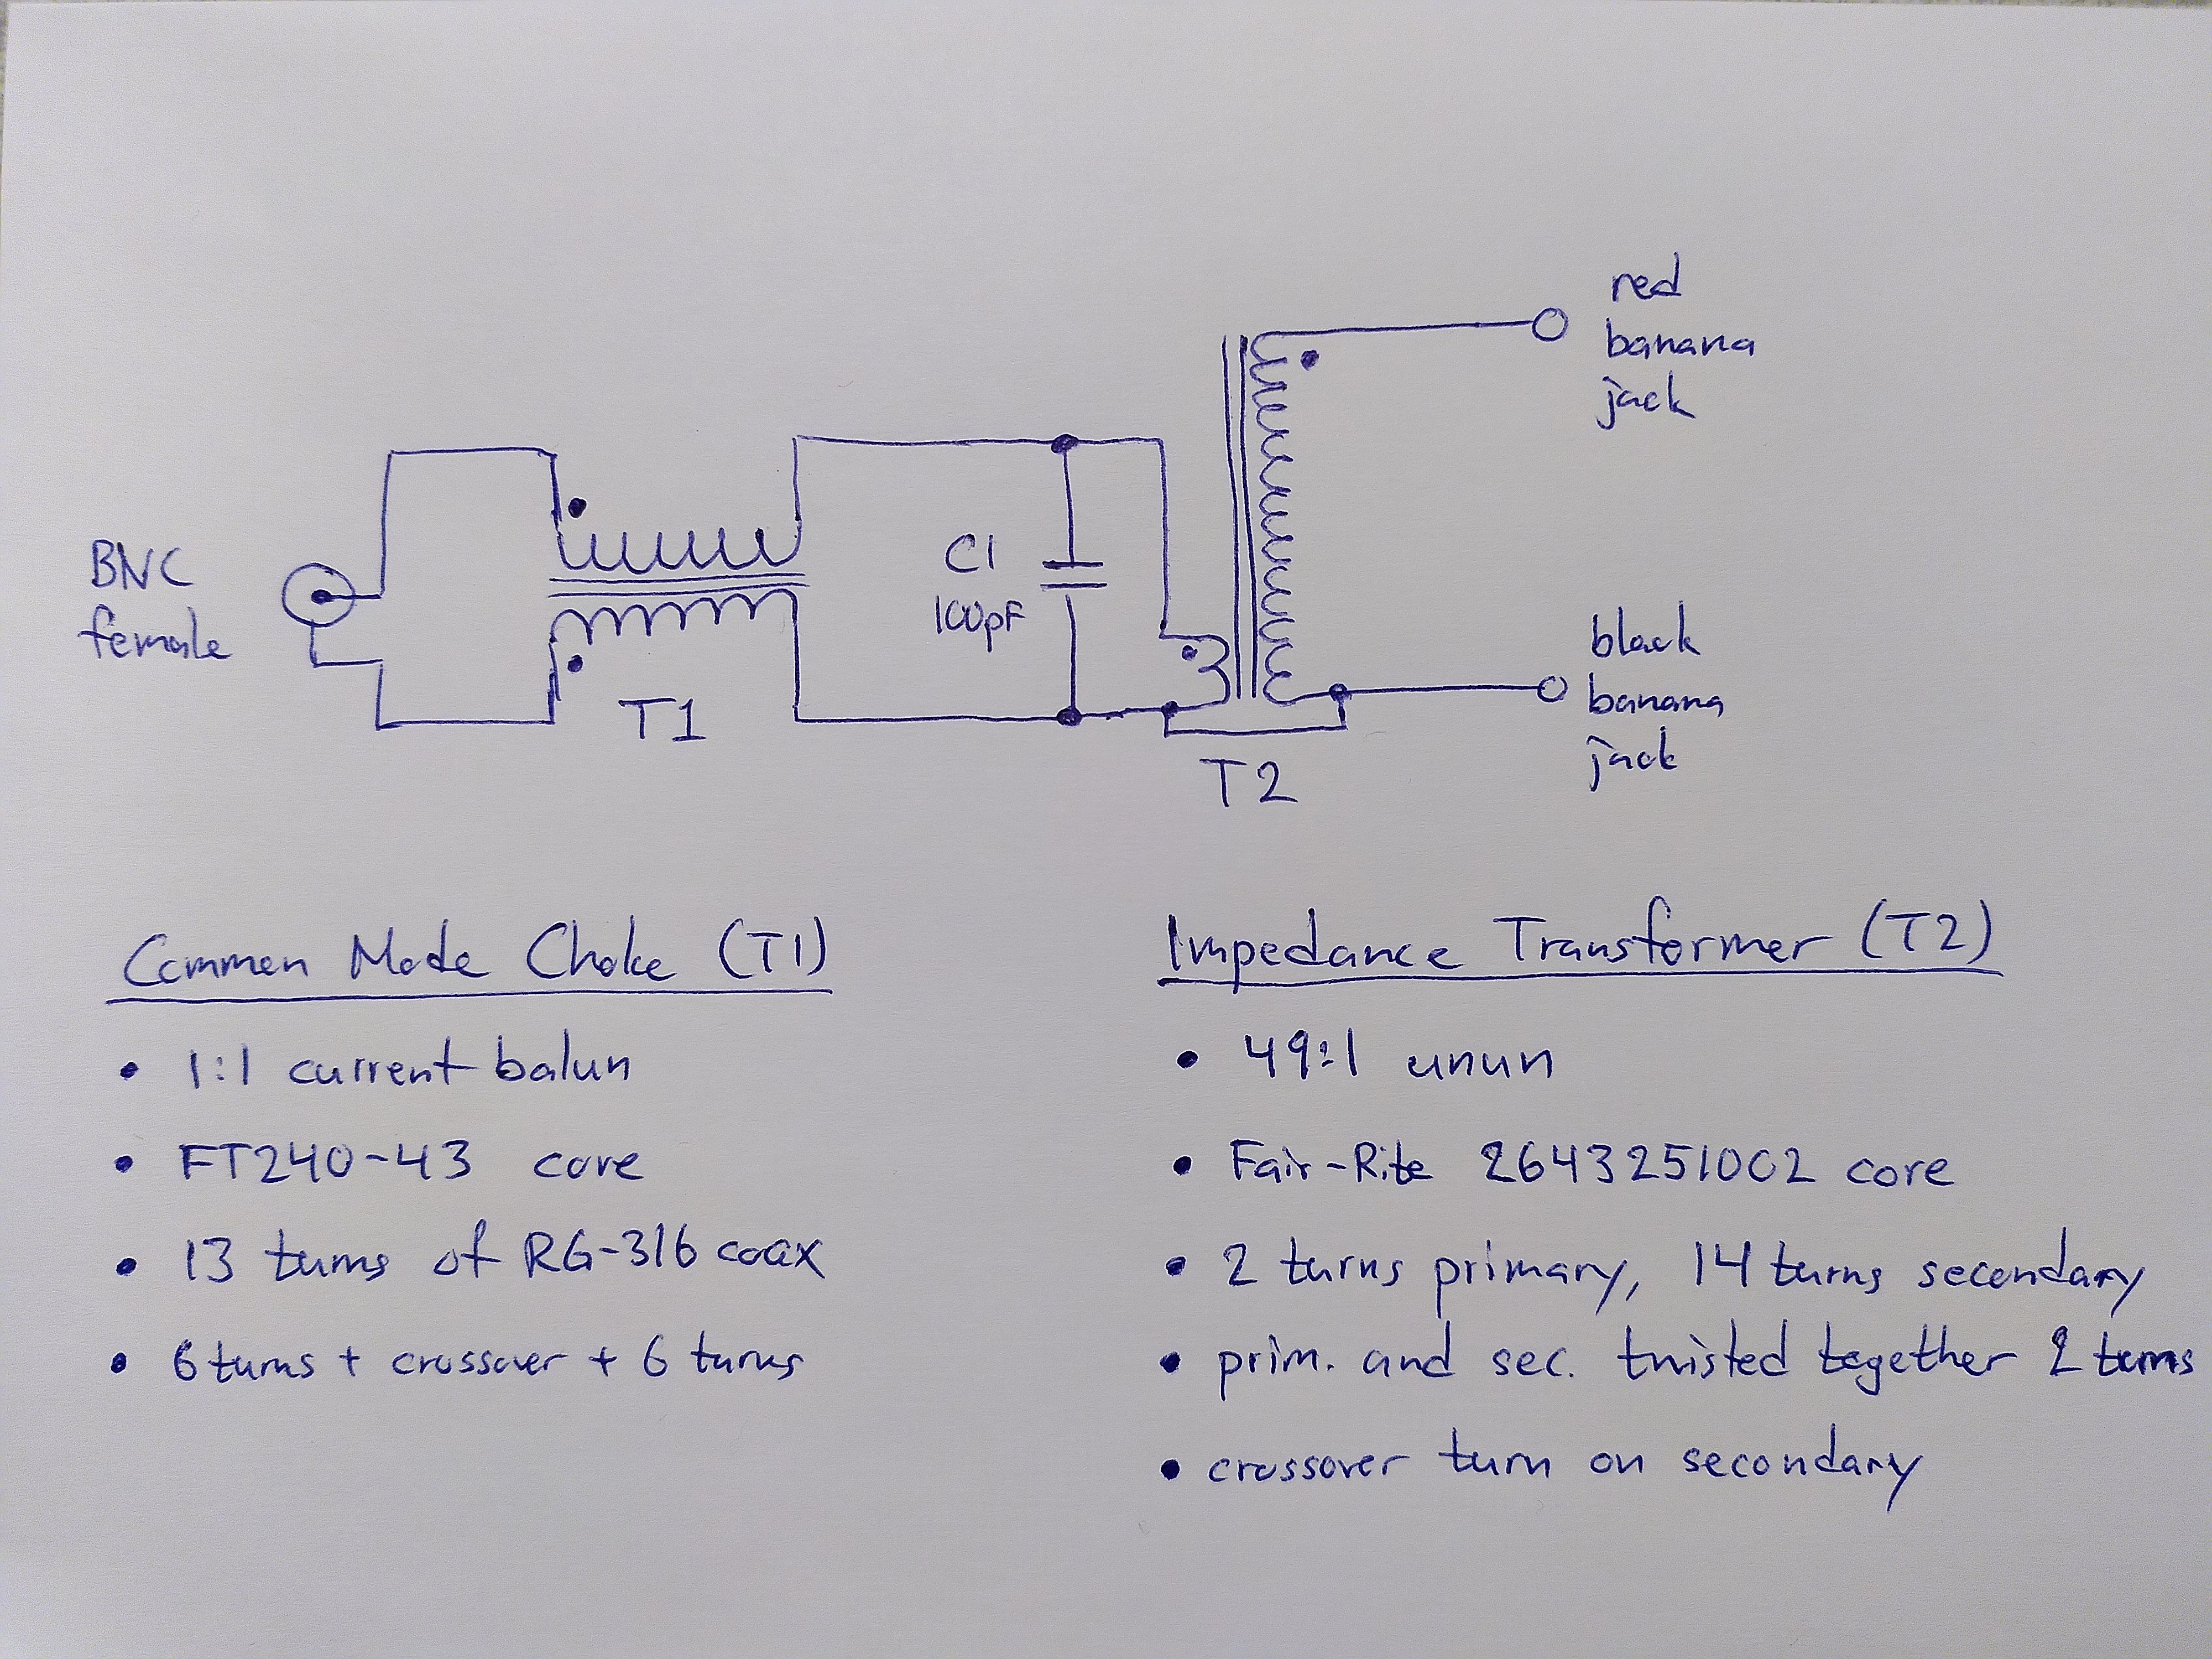 red
banana
jack
BNC
female
C1
100pF
black
banana
jack
T1
T2
Common Mode Choke (T1)
• 1:1 current balun
• FT240-43 core
• 13 turns of RG-316 coax
• 6 turns + crossover + 6 turns
Impedance Transformer (T2)
• 49:1 unun
• Fair-Rite 2643251002 core
• 2 turns primary, 14 turns secondary
• prim. and sec. twisted together 2 turns
• crossover turn on secondary